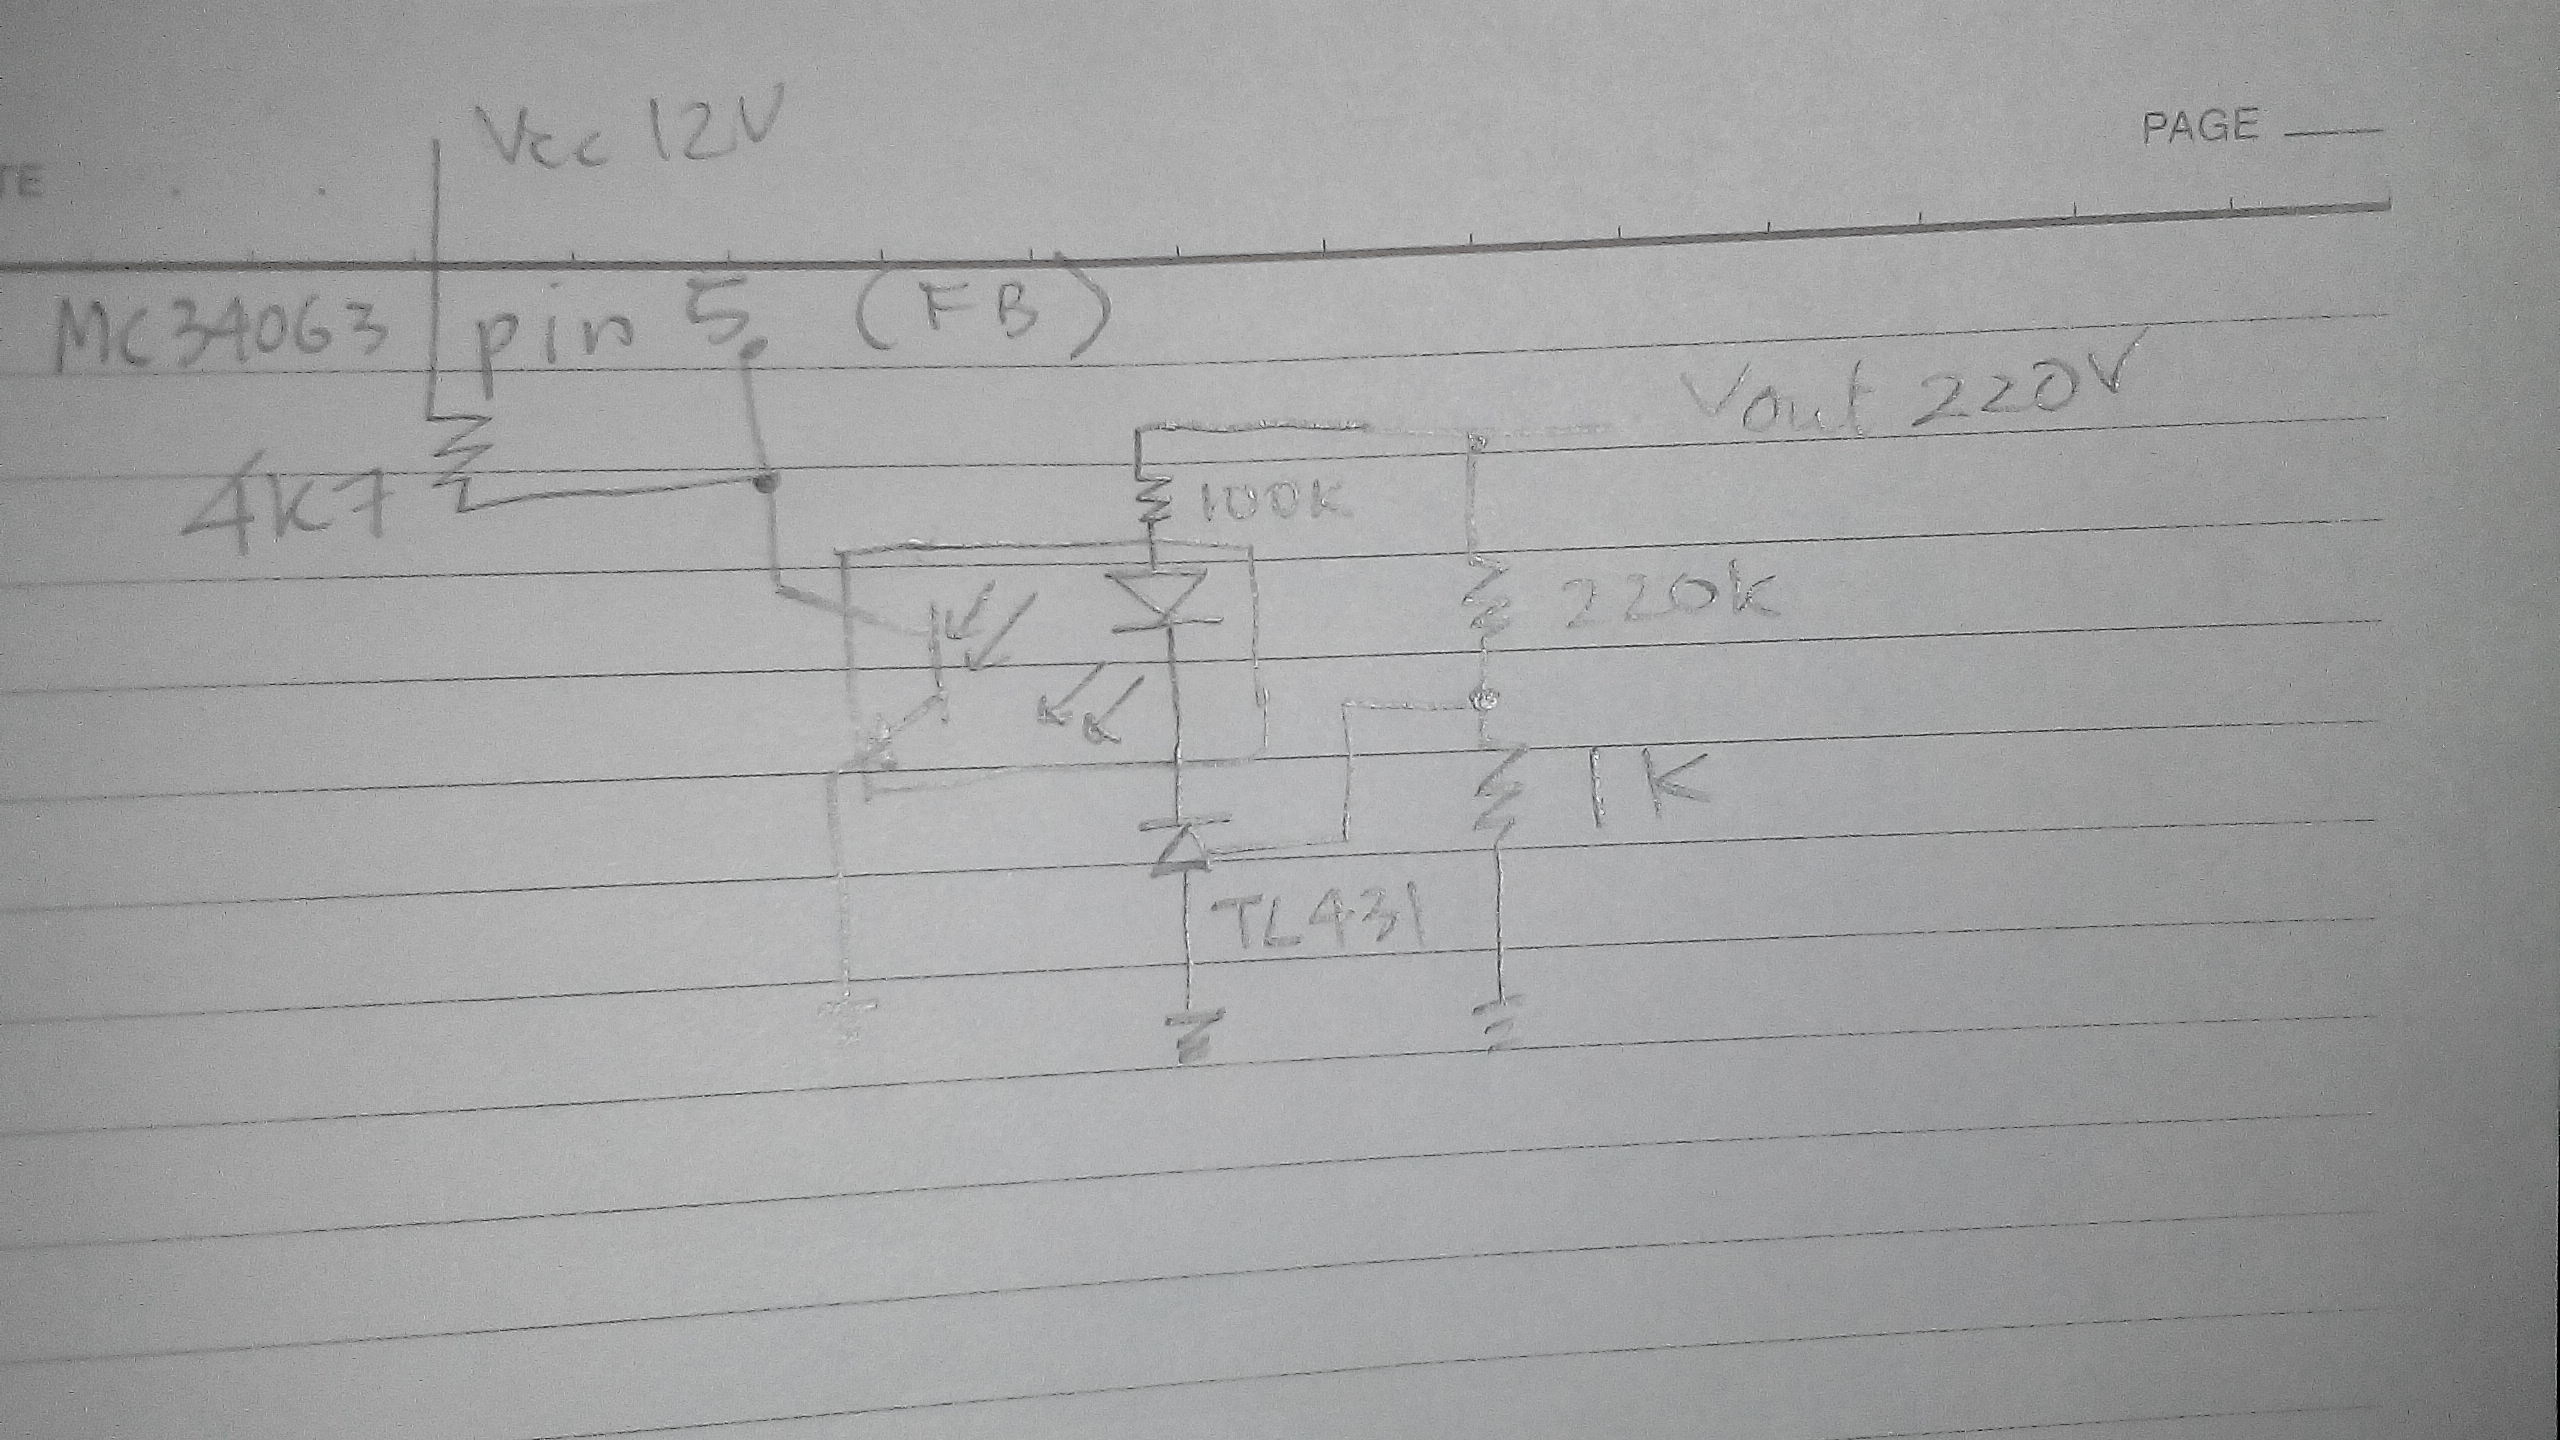 Vcc 12V
PAGE
TE
MC34063 pin 5 (FB)
Vout 220V
4K7
100K
220k
1K
TL431